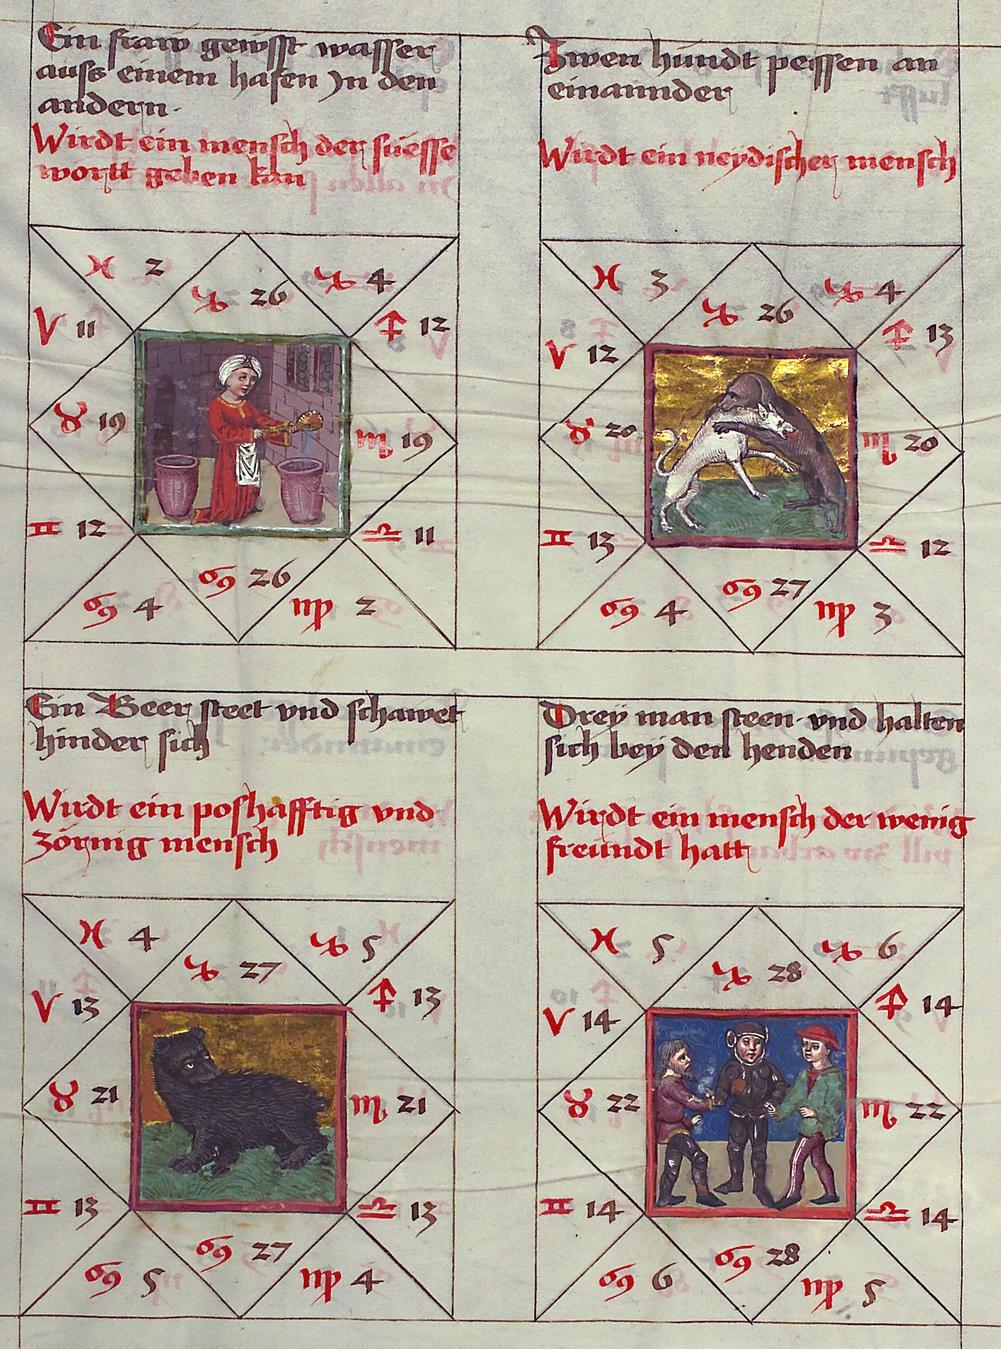 Ein fraw gewsst wasser
auss einem hafen Jn den
andern.
Wirdt ein mensch der suesse
wortt geben kan
♓ 2
♑ 26
♑ 4
♈ 11
♐ 12
♉ 19
♏ 19
♊ 12
♎ 11
♋ 4
♋ 26
♍ 2
Zwen hundt peissen an
einannder
Wirdt ein neydischer mensch
♓ 3
♑ 26
♑ 4
♈ 12
♐ 13
♉ 20
♏ 20
♊ 13
♎ 12
♋ 4
♋ 27
♍ 3
Ein Beer steet vnd schawet
hinder sich
Wirdt ein poshafftig vnd
zörnig mensch
♓ 4
♑ 27
♑ 5
♈ 13
♐ 13
♉ 21
♏ 21
♊ 13
♎ 13
♋ 5
♋ 27
♍ 4
Drey man steen vnd halten
sich bey den henden
Wirdt ein mensch der wenig
freundt hatt
♓ 5
♑ 28
♑ 6
♈ 14
♐ 14
♉ 22
♏ 22
♊ 14
♎ 14
♋ 6
♋ 28
♍ 5